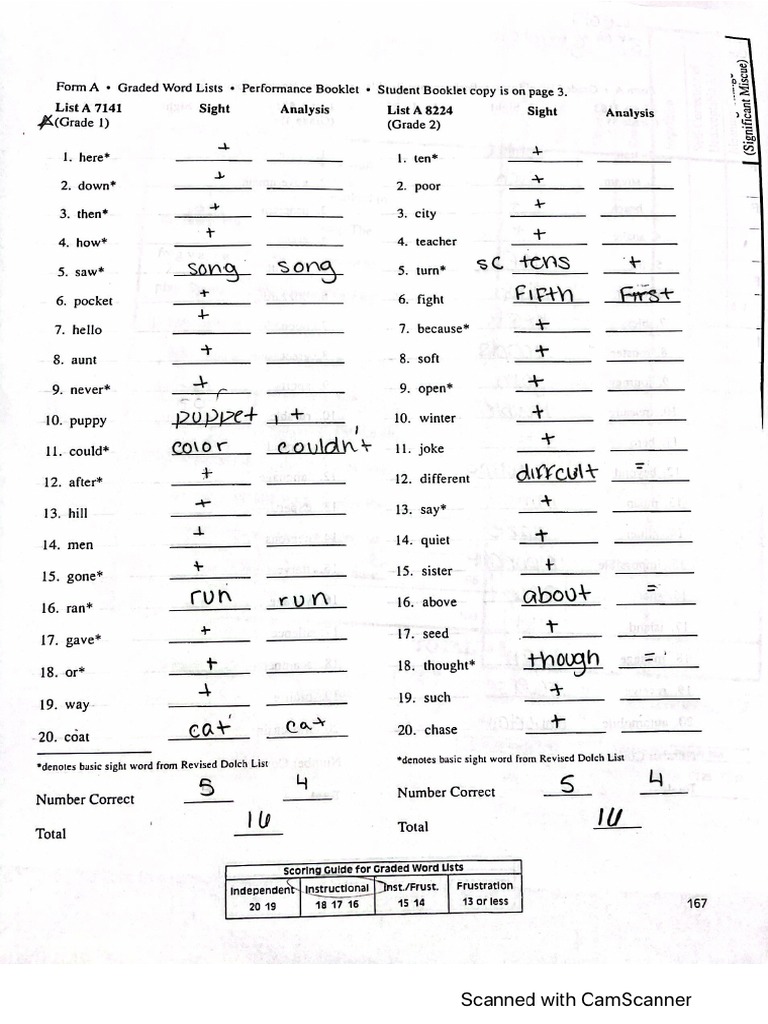 (Significant Miscue)
Form A • Graded Word Lists • Performance Booklet • Student Booklet copy is on page 3.
List A 7141 Sight Analysis
(Grade 1)
1. here* +
2. down* +
3. then* +
4. how* +
5. saw* song song
6. pocket +
7. hello +
8. aunt +
9. never* +
10. puppy puppet +
11. could* color couldn't
12. after* +
13. hill +
14. men +
15. gone* +
16. ran* run run
17. gave* +
18. or* +
19. way +
20. coat cat cat
*denotes basic sight word from Revised Dolch List
Number Correct 5 4
Total 16
List A 8224 Sight Analysis
(Grade 2)
1. ten* +
2. poor +
3. city +
4. teacher +
5. turn* sc tens +
6. fight Fifth First
7. because* +
8. soft +
9. open* +
10. winter +
11. joke +
12. different difficult =
13. say* +
14. quiet +
15. sister +
16. above about =
17. seed +
18. thought* though =
19. such +
20. chase +
*denotes basic sight word from Revised Dolch List
Number Correct 5 4
Total 16
Scoring Guide for Graded Word Lists
Independent Instructional Inst./Frust. Frustration
20 19 18 17 16 15 14 13 or less
167
Scanned with CamScanner